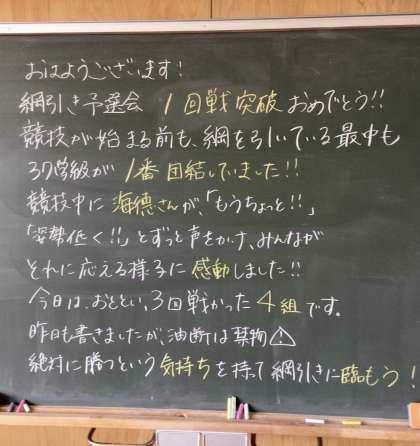 おはようございます!
綱引き予選会 1回戦突破おめでとう!!
競技が始まる前も、綱を引いている最中も
37学級が1番団結していました!!
競技中に海徳さんが、「もうちょっと!!」
「姿勢低く!!」とずっと声をかけ、みんなが
それに応える様子に感動しました!!
今日は、おととい、3回戦かった4組です。
昨日も書きましたが、油断は禁物⚠
絶対に勝つという気持ちを持て綱引きに臨もう!